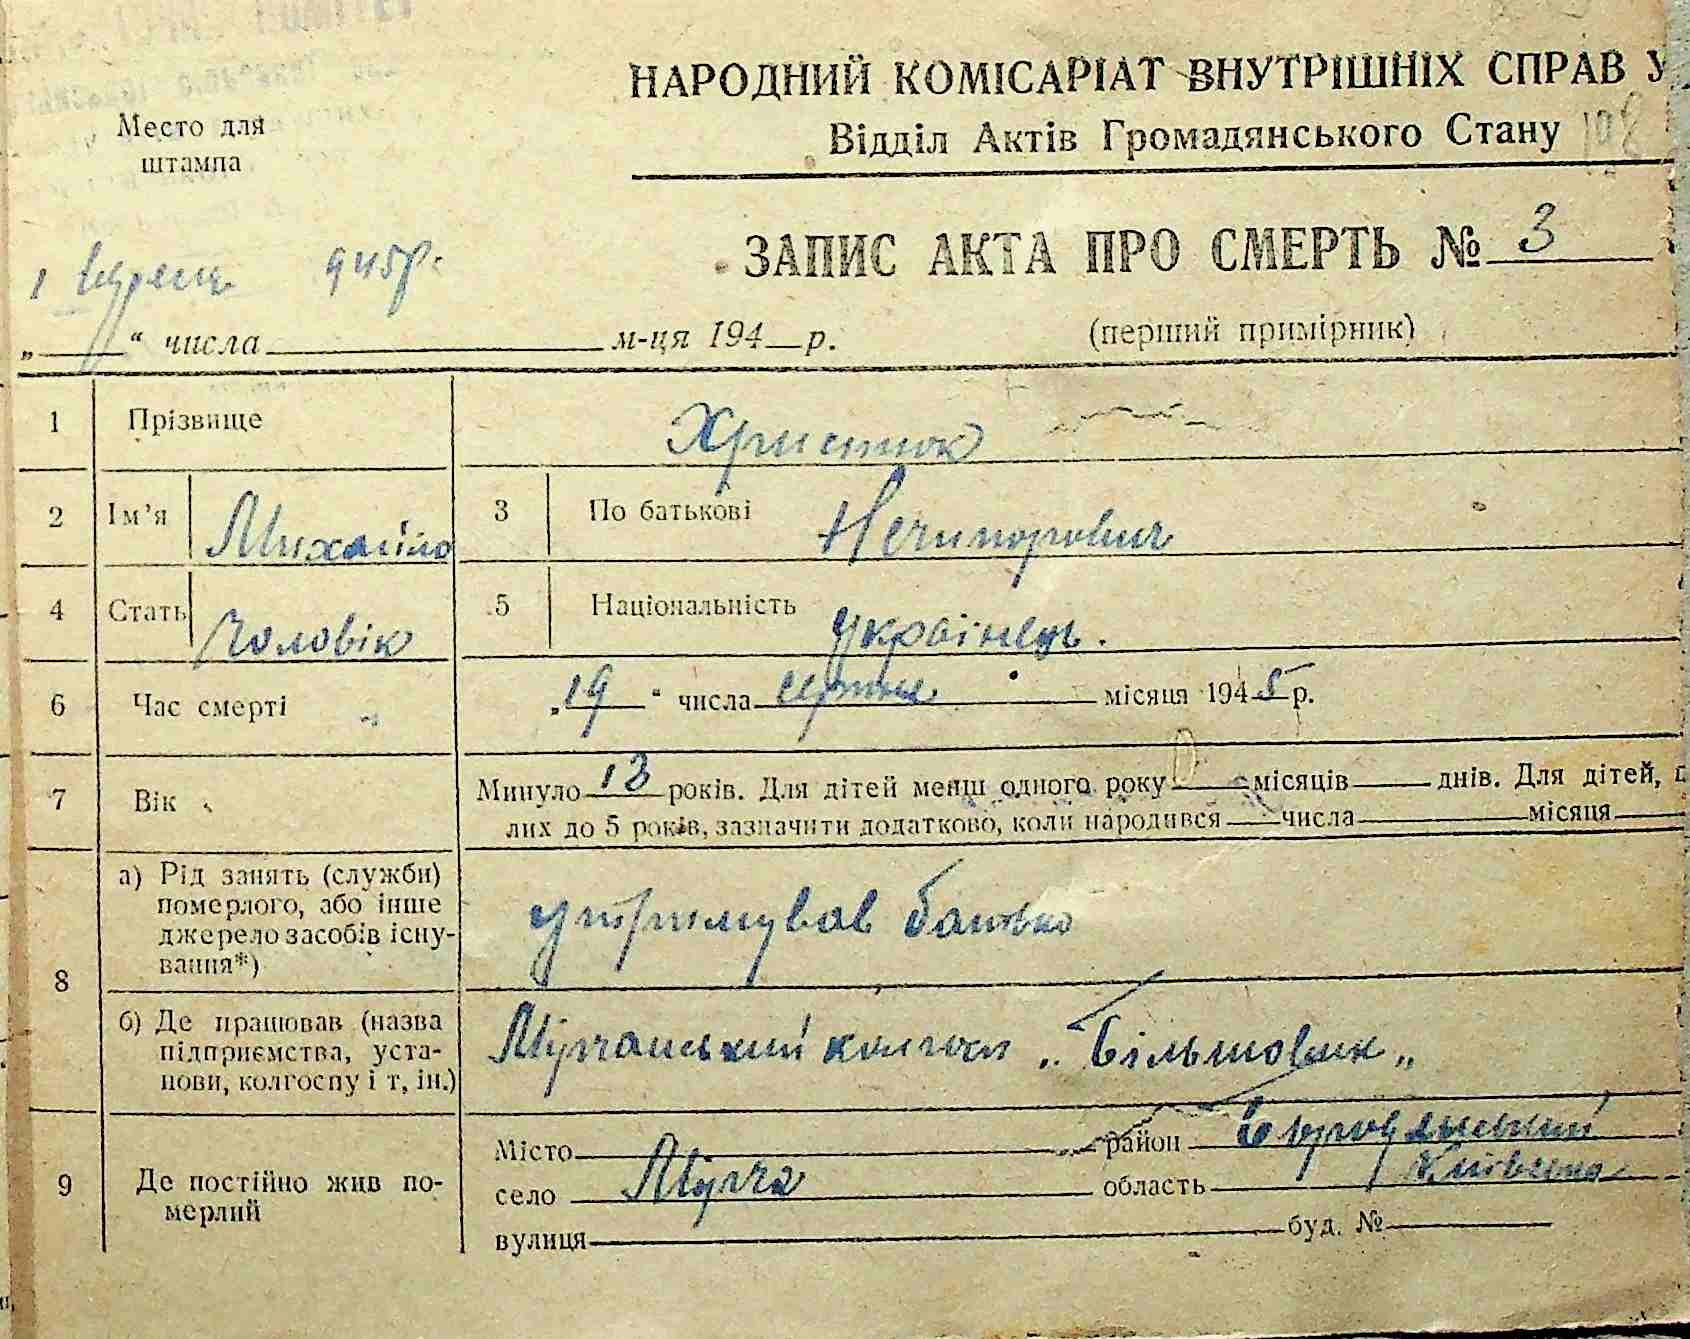 НАРОДНИЙ КОМІСАРІАТ ВНУТРІШНІХ СПРАВ У
Відділ Актів Громадянського Стану 108
Место для
штампа
ЗАПИС АКТА ПРО СМЕРТЬ № 3
1 945р.
„ “ числа м-ця 194 р.
(перший примірник)
1 Прізвище Христюк
2 Ім'я Михайло 3 По батькові Нечипорович
4 Стать Чоловік 5 Національність українець.
6 Час смерті „19“ числа серпня місяця 1945 р.
7 Вік Минуло 13 років. Для дітей менш одного року місяців днів. Для дітей,
лих до 5 років, зазначити додатково, коли народився числа місяця
8 а) Рід занять (служби) померлого, або інше джерело засобів існування*) утримував батько
б) Де працював (назва підприємства, установи, колгоспу і т, ін.) колгосп „Більшовик„
9 Де постійно жив померлий
Місто район Бородянський
село Мирча область Київська
вулиця буд. №